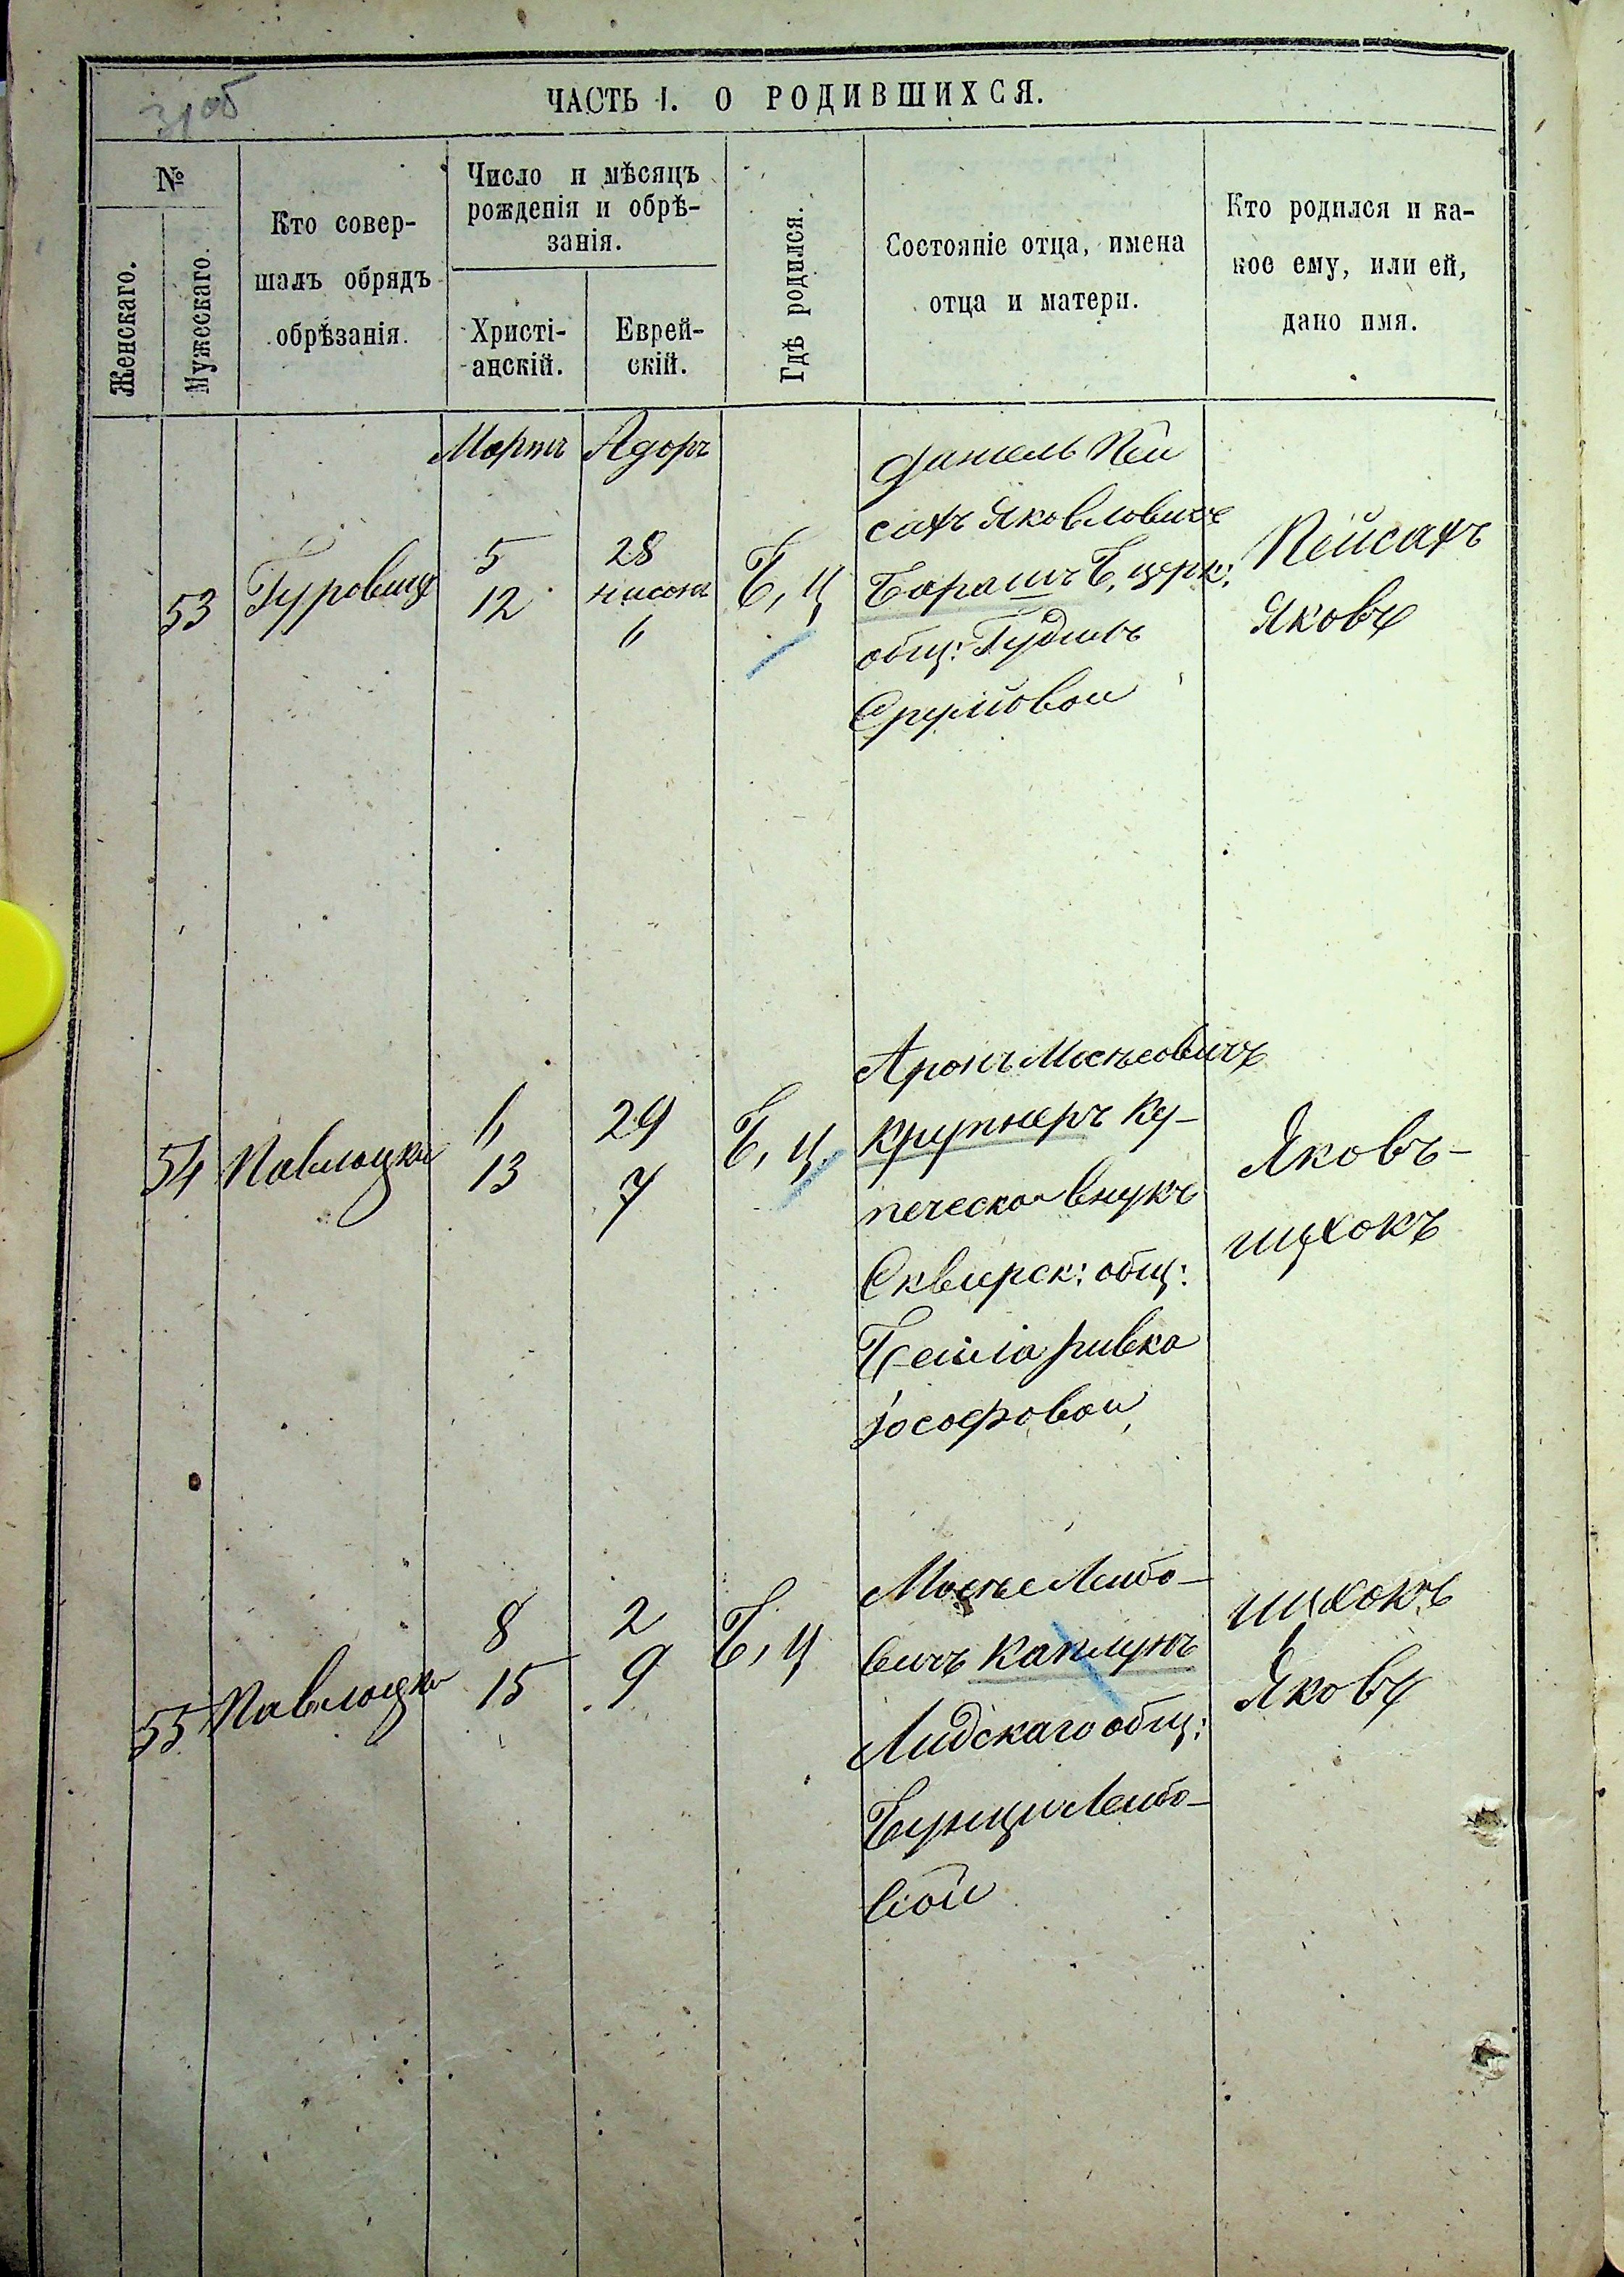 31об
ЧАСТЬ I. О РОДИВШИХСЯ.
№
Женскаго.
Мужескаго.
Кто совер-
шалъ обрядъ
обрѣзанія.
Число и мѣсяцъ
рожденія и обрѣ-
занія.
Христі-
анскій.
Еврей-
скій.
Гдѣ родился.
Состояніе отца, имена
отца и матери.
Кто родился и ка-
кое ему, или ей,
дано имя.
Мартъ
Адаръ
53
Гуровицъ
5
12
28
нисона
6
Б, Ц
Даніель Пей
сахъ Яковловичъ
Борашъ Б, церк:
общ: Гудимъ
Срулiовои
Пейсахъ
Яковъ
54
Паволоцки
6
13
29
7
Б, ц
Аронъ Мосньсовичъ
Крупнеръ Ку-
печескои внукъ
Сквирск: общ:
Бейла ривка
Іософовои
Яковъ-
ицхокъ
55
Паволоцки
8
15
2
9
Б, ц
Мосьсе Лейбо-
вичъ Каплунъ
Лидскаго общ:
Бунци Лейбо-
вой
ицхокъ
Яковъ